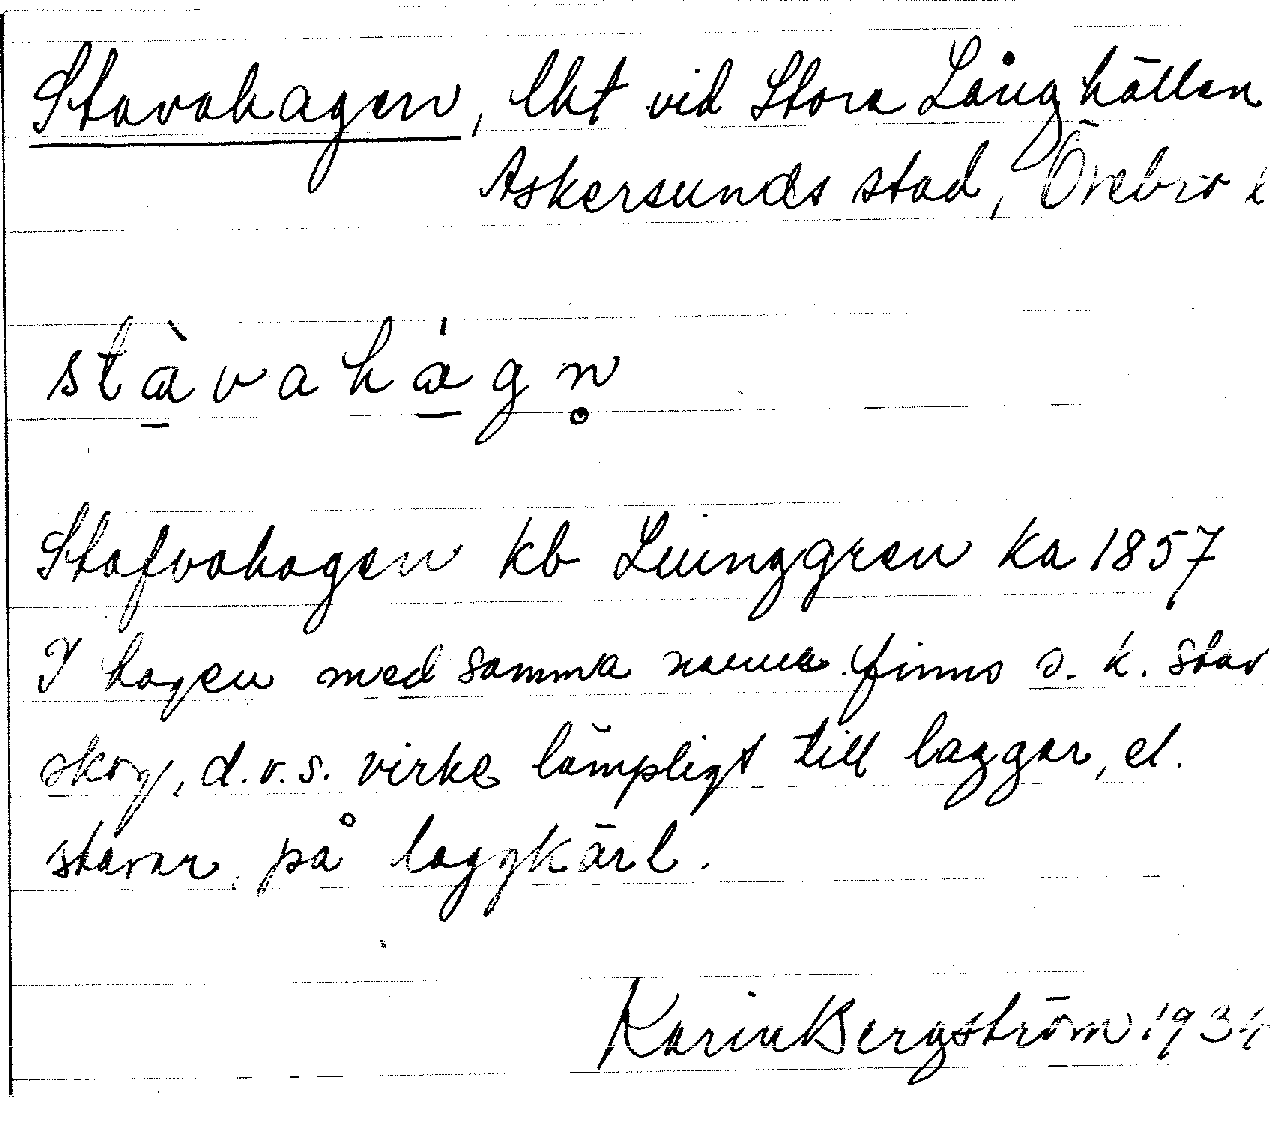 Stavahagen, lht vid Stora Långhällen
Askersunds stad, Örebro l
stàvahágn̥
Stafvahagen kb Ljunggren ka 1857
I hagen med samma namn finns s. k. stav
skog, d.v.s. virke lämpligt till laggar, el.
stavar på laggkärl.
Karin Bergström 1934